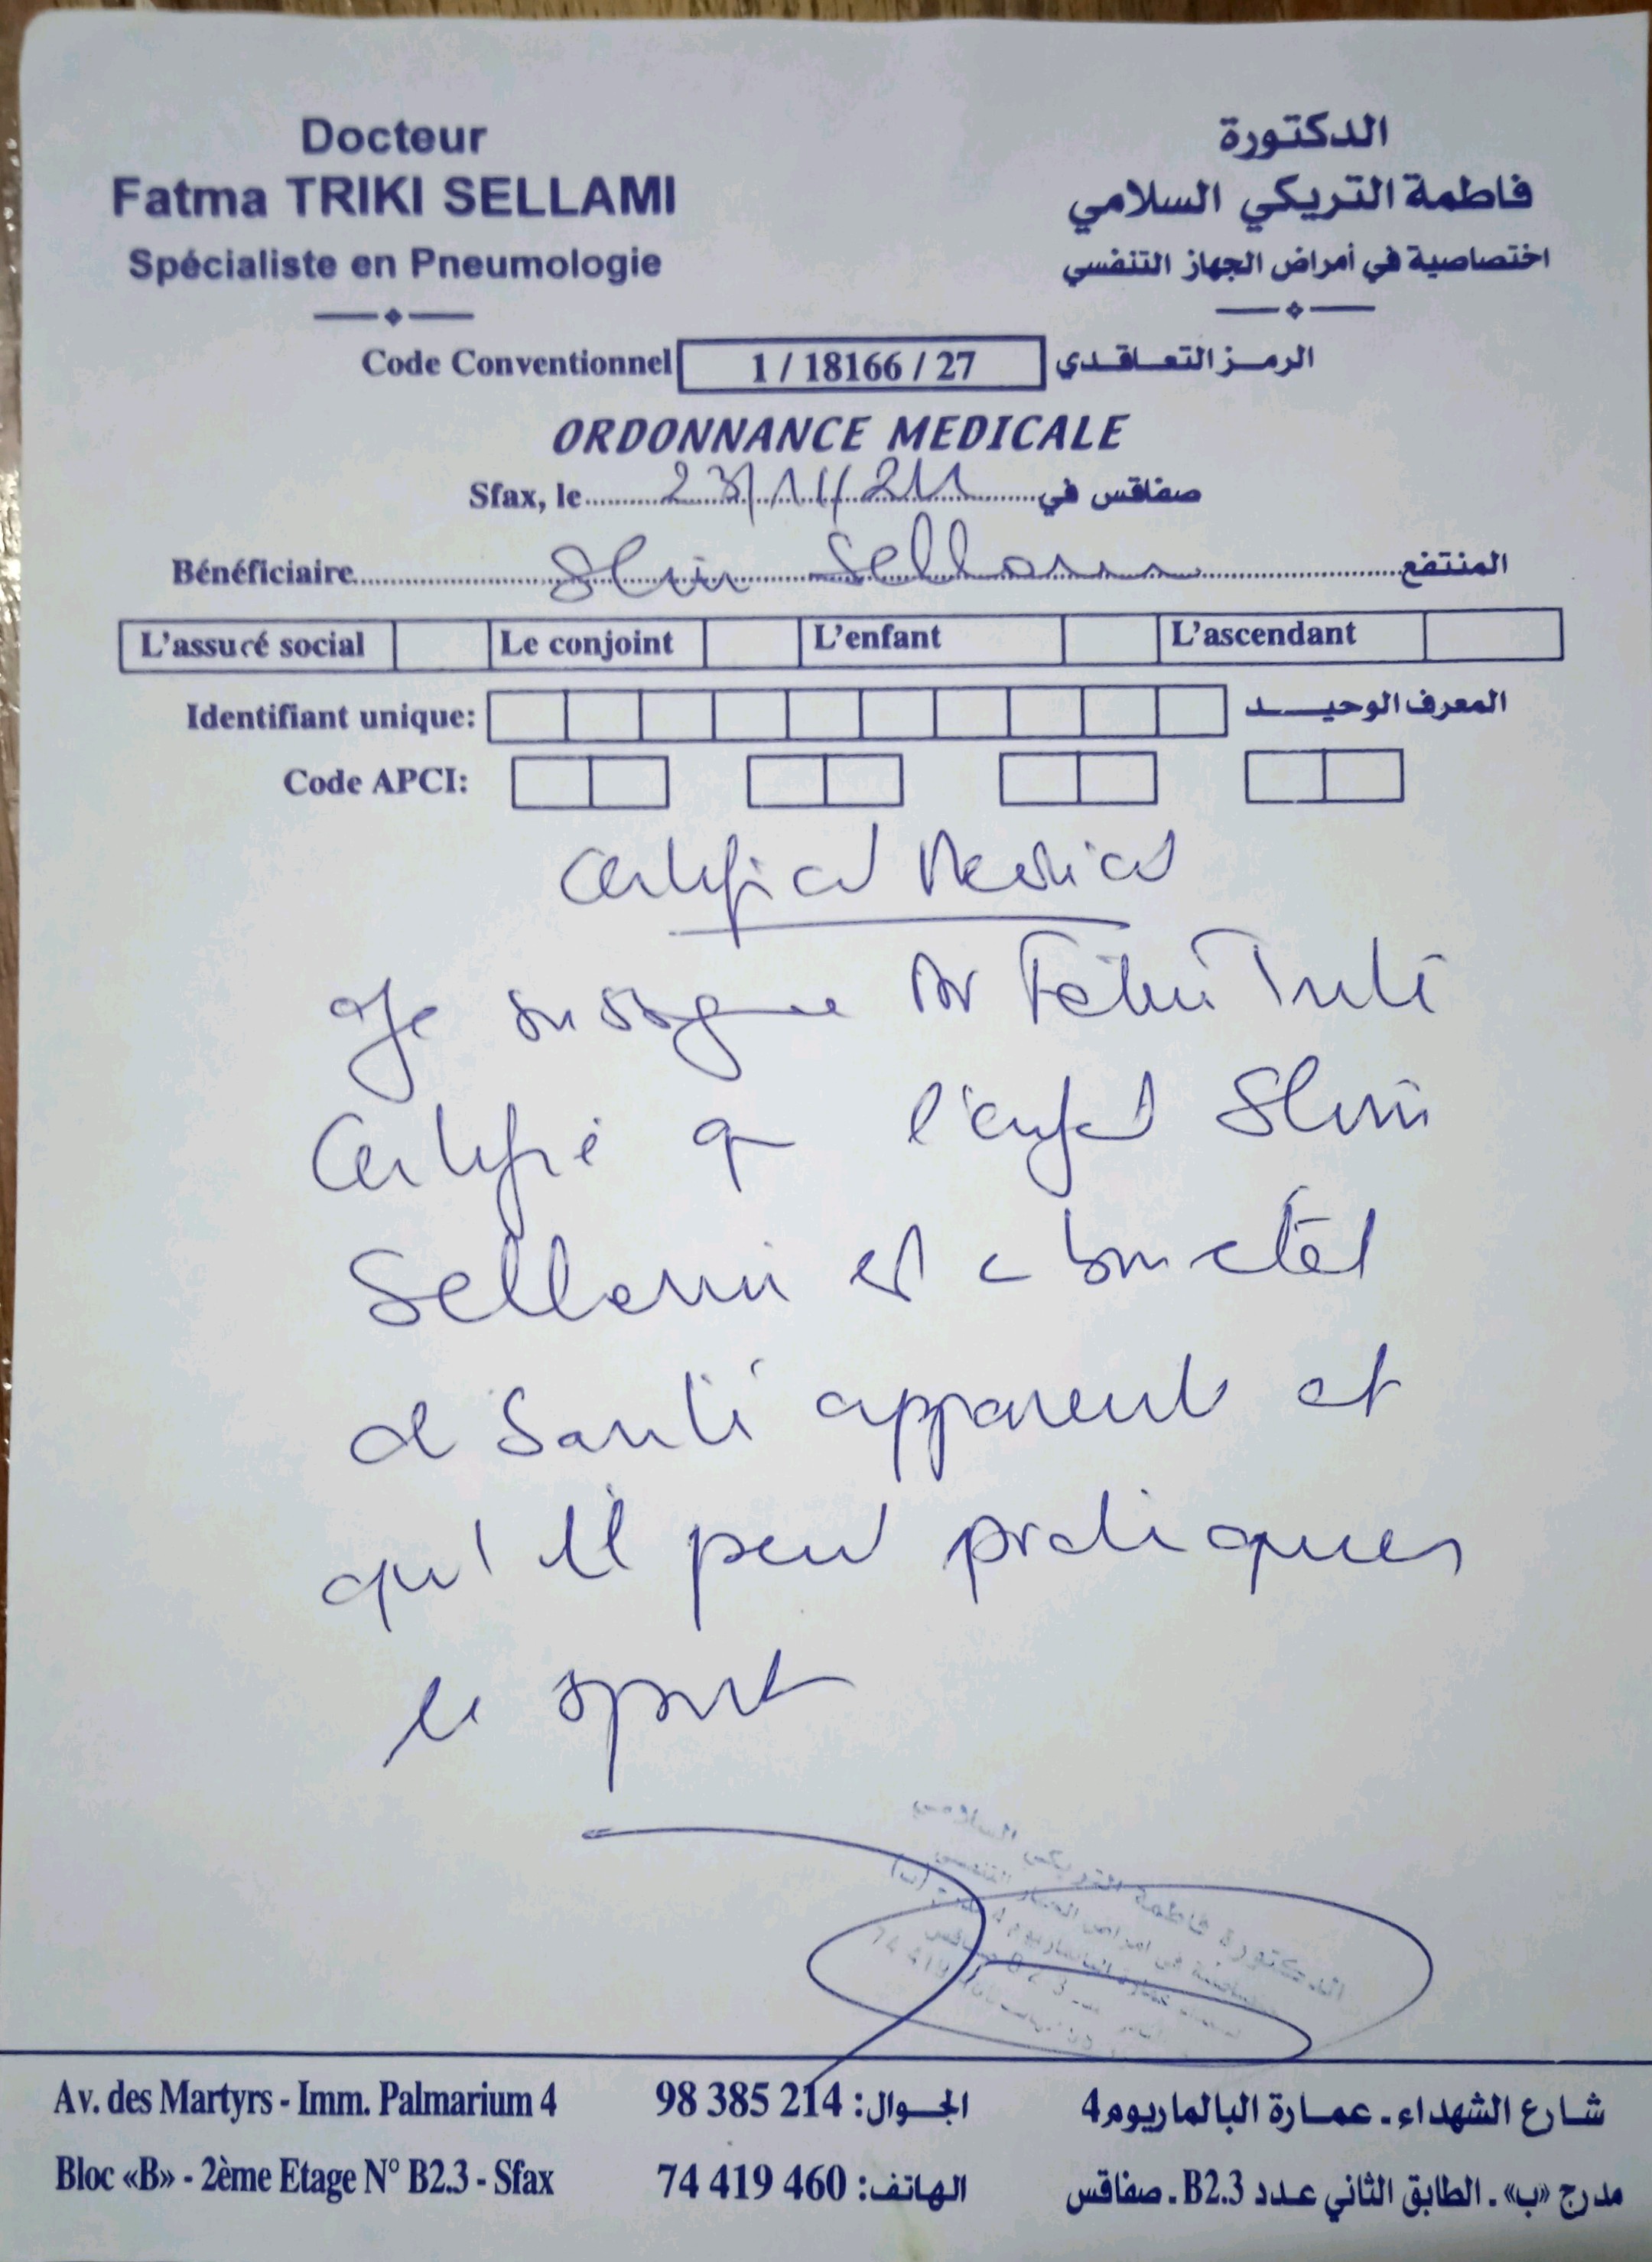 Docteur
Fatma TRIKI SELLAMI
Spécialiste en Pneumologie
الدكتورة
فاطمة التريكي السلامي
اختصاصية في أمراض الجهاز التنفسي
Code Conventionnel 1 / 18166 / 27 الرمز التعاقدي
ORDONNANCE MEDICALE
Sfax, le 23/11/ صفاقس في
Bénéficiaire Slim Sellami المنتفع
L'assuré social Le conjoint L'enfant L'ascendant
Identifiant unique: المعرف الوحيد
Code APCI:
Certificat Medical
Je soussigne Dr Fatma Triki
Certifie que l'enfant Slim
Sellami est en bon état
de Santé apparente et
qu'il peut pratiquer
le sport
Av. des Martyrs - Imm. Palmarium 4
Bloc «B» - 2ème Etage N° B2.3 - Sfax
الجوال: 98 385 214
الهاتف: 74 419 460
شارع الشهداء - عمارة البالماريوم 4
مدرج «ب» - الطابق الثاني عدد B2.3 - صفاقس